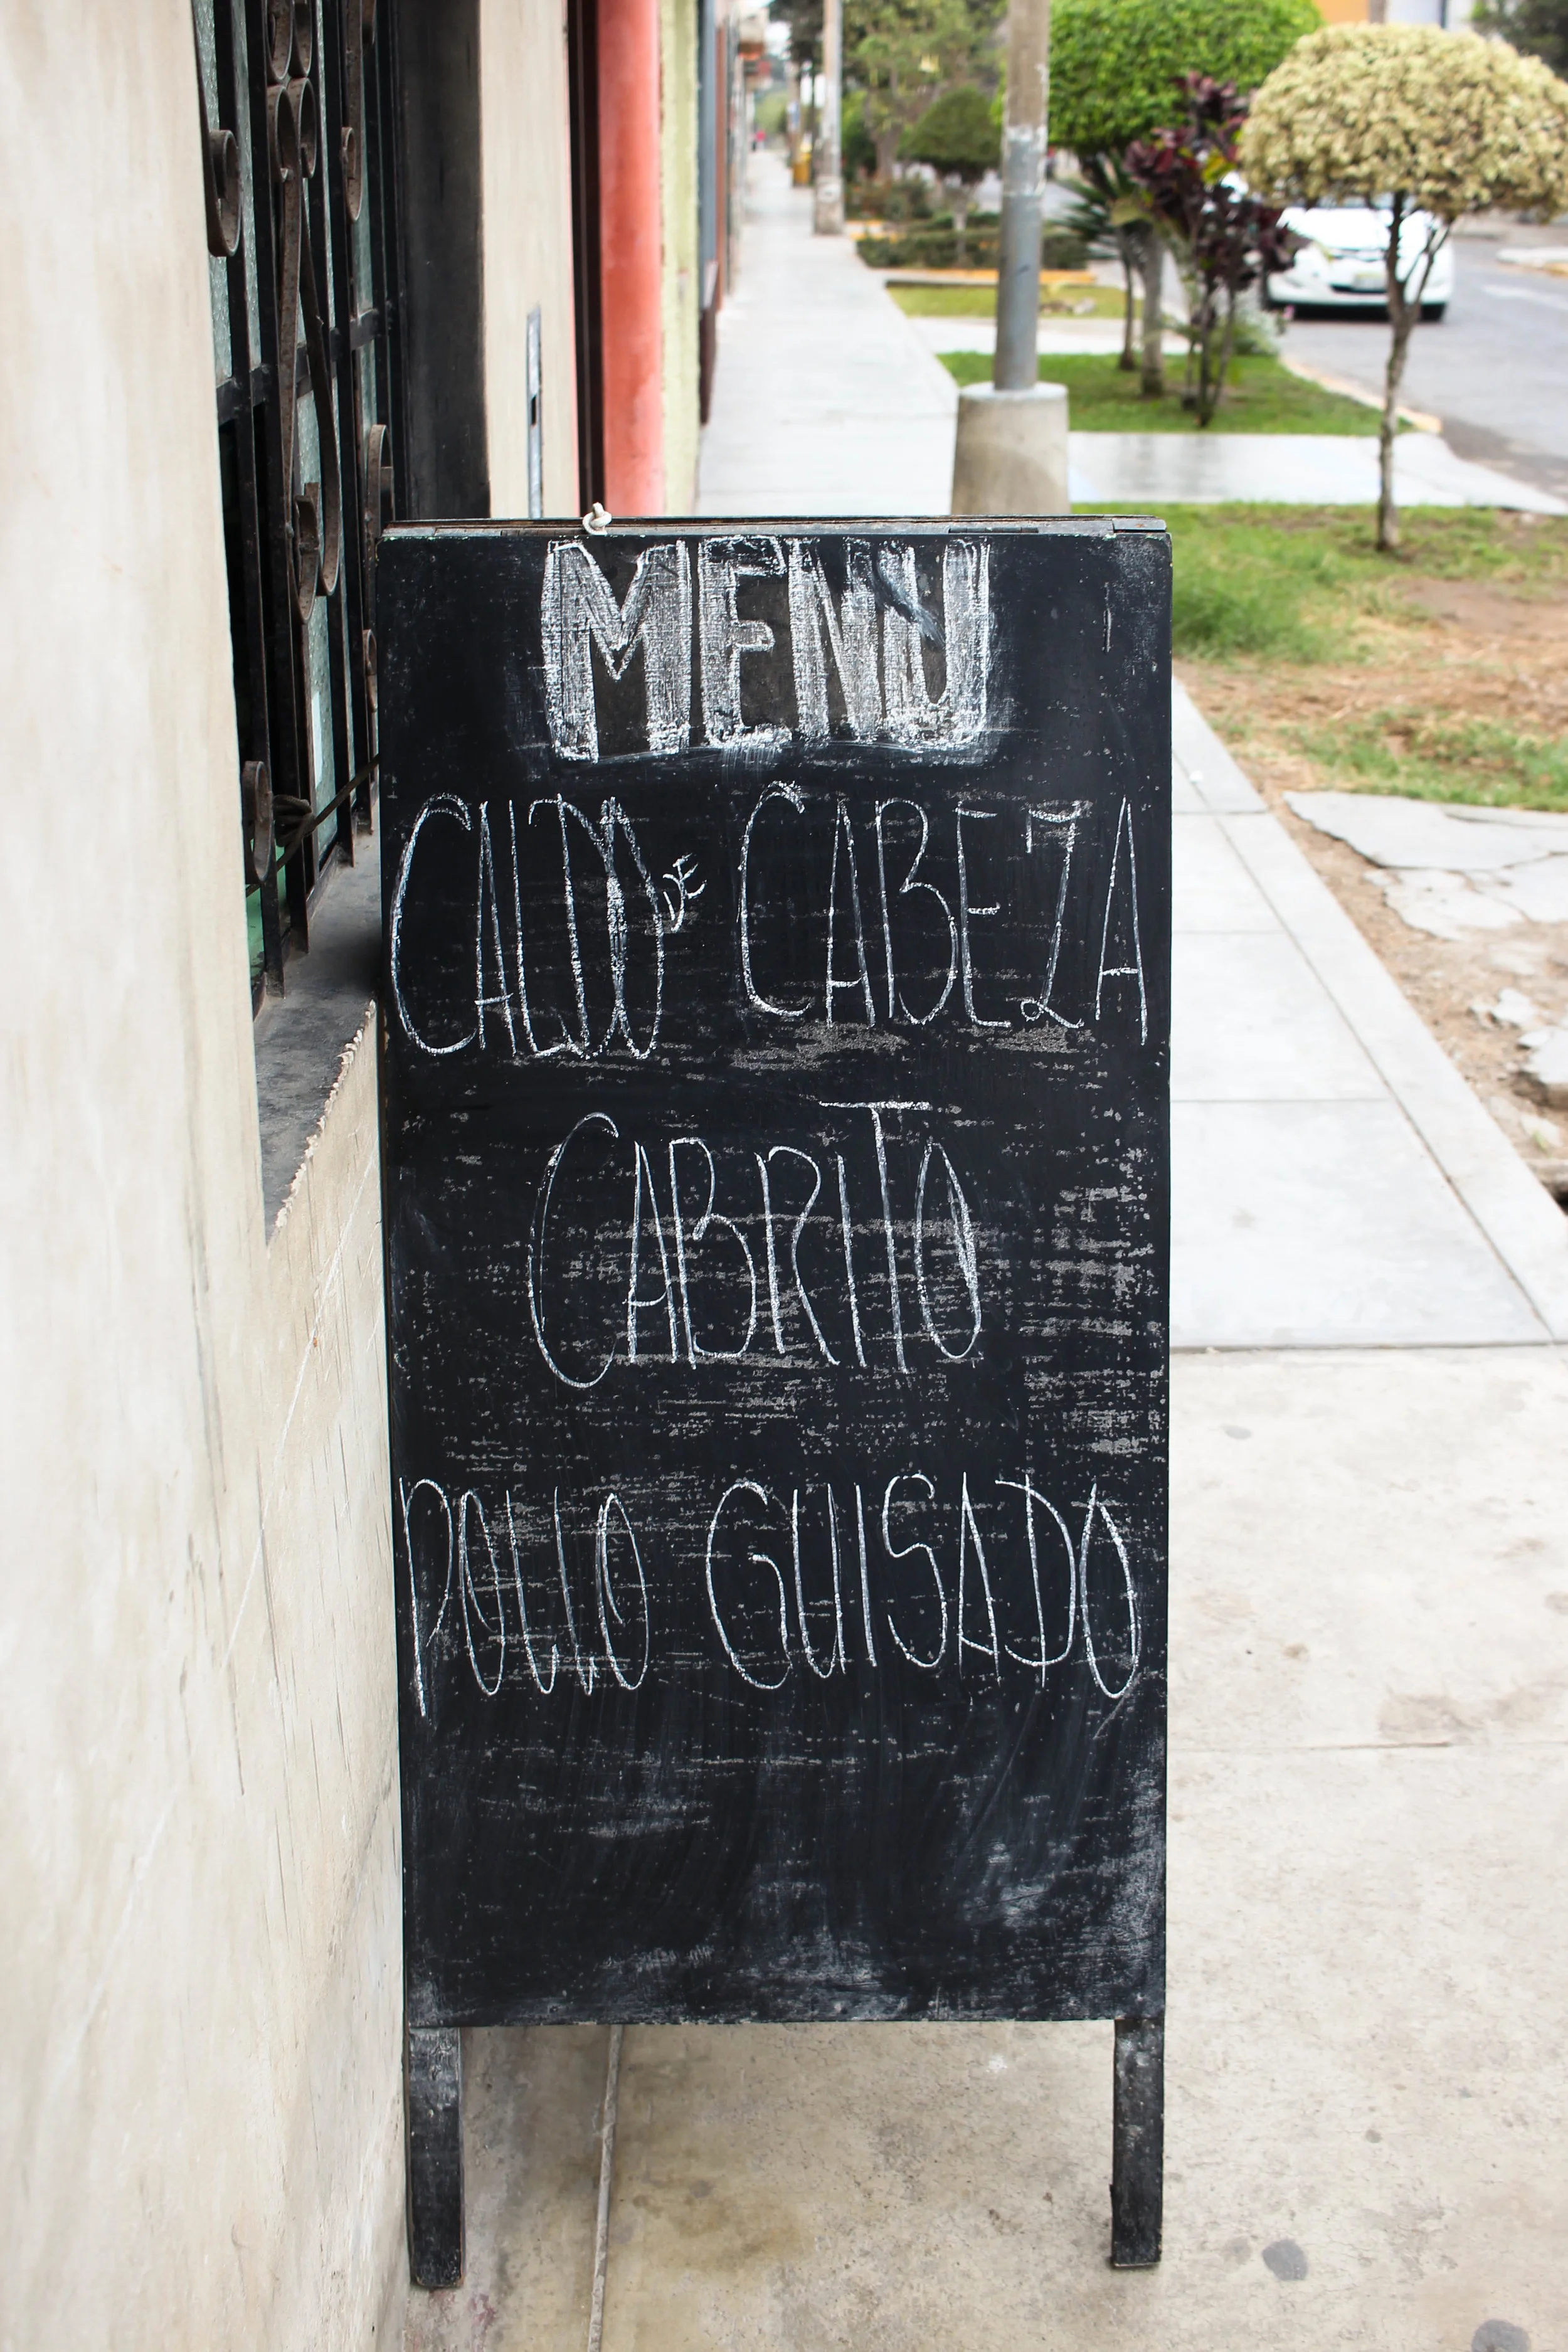 MENU
CALDO DE CABEZA
CABRITO
POLLO GUISADO